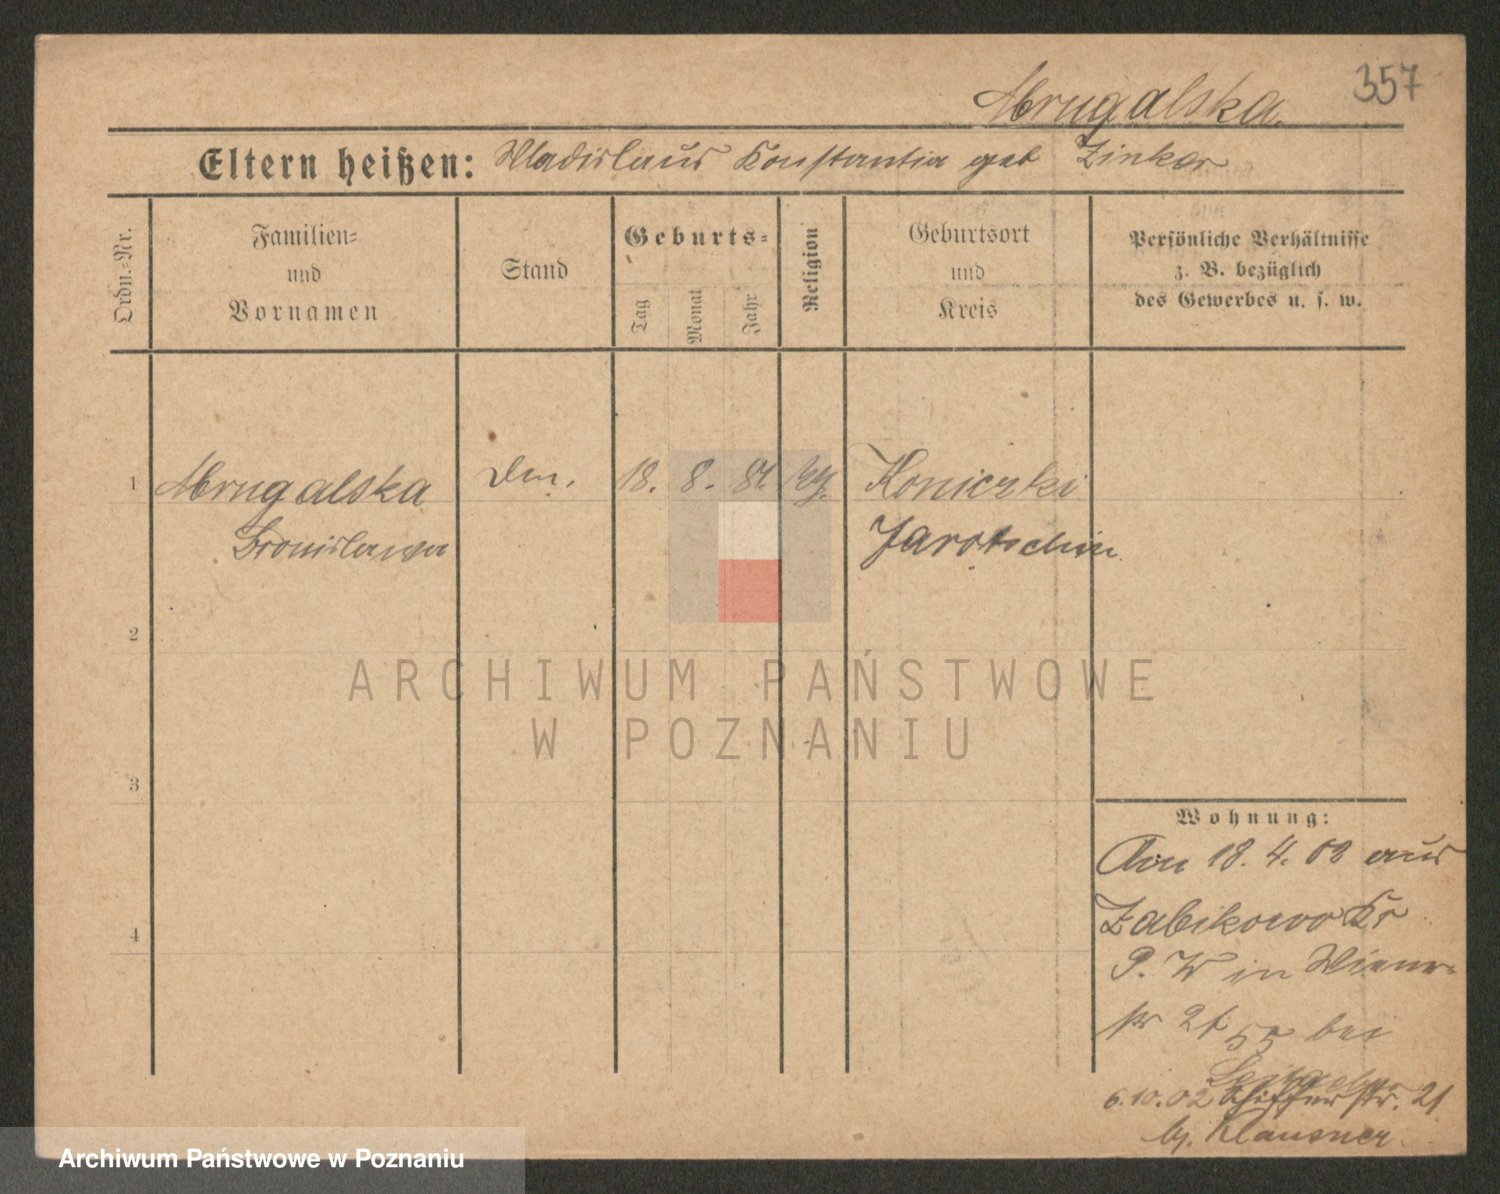 357
Mrugalska
Eltern heißen: Wladislaus Konstantia geb Zinker
Ordn.-Nr.
Familien-
und
Vornamen
Stand
Geburts-
Tag
Monat
Jahr
Religion
Geburtsort
und
Kreis
Persönliche Verhältnisse
z. B. bezüglich
des Gewerbes u. s. w.
1 Mrugalska 18. 8. 81 Koniczki
Bronislawa Jarotschin
2
3
4
ARCHIWUM PAŃSTWOWE
W POZNANIU
Wohnung:
Am 18. 4. 02 aus
Zabikowo Kr
P. W in Wiener-
str 21 bei
6.10.02 str. 21
b/. Klausner
Archiwum Państwowe w Poznaniu